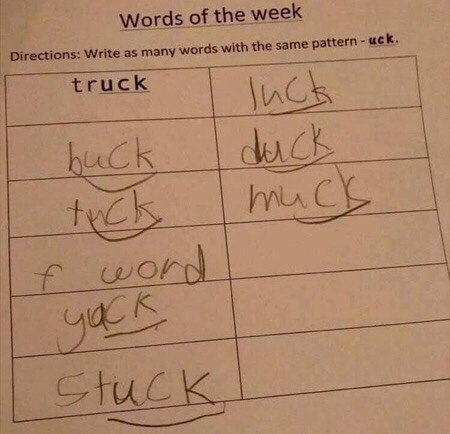 Words of the week
Directions: Write as many words with the same pattern - uck.
truck luck
buck duck
tuck muck
f word
yack
stuck